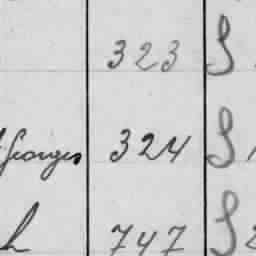 323 S
Georges 324 S
h 747 S 2